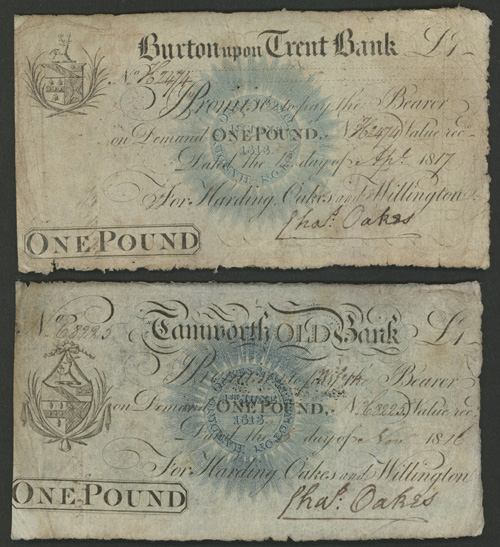 Burton upon Trent Bank £1
No. K2474
I Promise to pay the Bearer
on Demand ONE POUND. No K2474 Value rec
Dated the 12 day of Apl. 1817
1813
For Harding, Oakes and Willington
Chas. Oakes
ONE POUND
Tamworth OLD Bank £1
No.
I Promise to the Bearer
on Demand ONE POUND. No Value rec
Dated the day of 1816
1813
For Harding Oakes and Willington
Chas. Oakes
ONE POUND